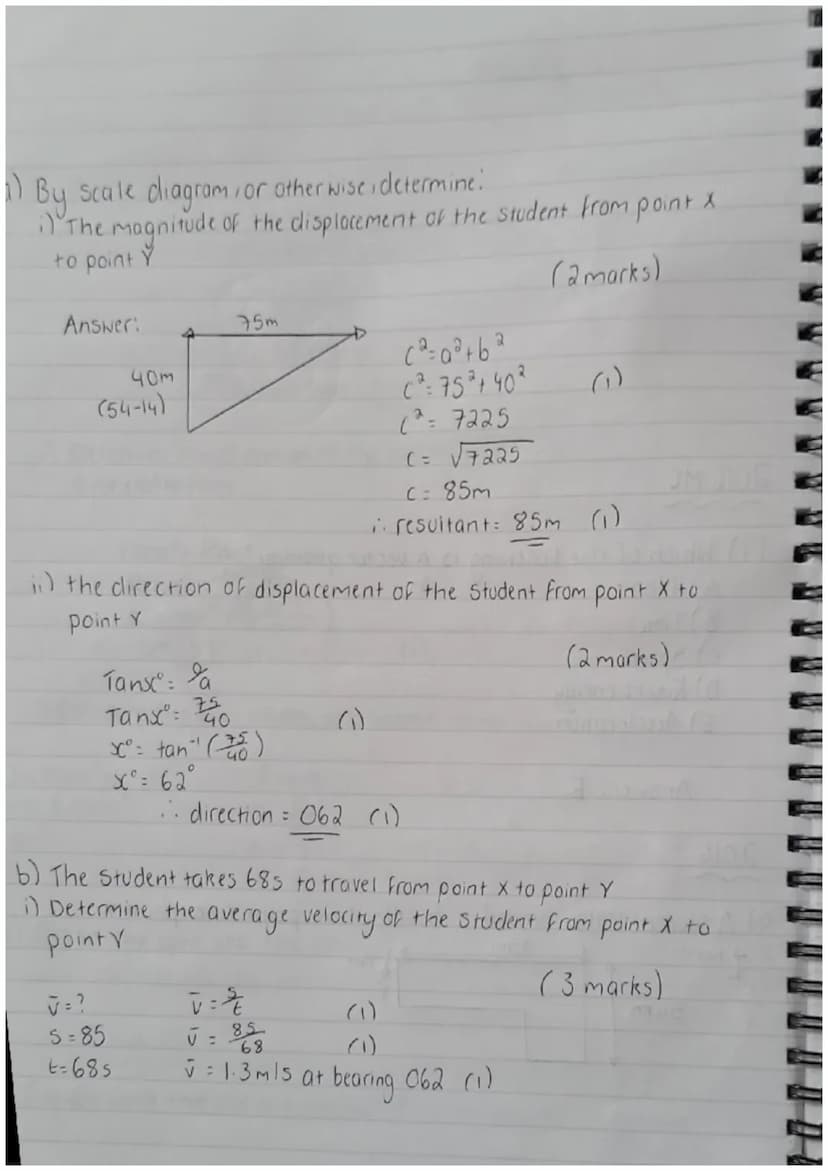 a) By scale diagram, or otherwise, determine:
i) The magnitude of the displacement of the student from point X
to point Y
(2 marks)
Answer:
75m
40m
(54-14)
c²=a²+b²
c²=75²+40² (1)
c²= 7225
c= √7225
c= 85m
∴ resultant= 85m (1)
ii) the direction of displacement of the student from point X to
point Y
(2 marks)
Tanx°= o/a
Tanx°= 75/40 (1)
x°= tan⁻¹(75/40)
x°= 62°
∴ direction = 062 (1)
b) The student takes 68s to travel from point X to point Y
i) Determine the average velocity of the student from point X to
point Y
(3 marks)
v̄=? v̄=s/t (1)
s=85 v̄= 85/68 (1)
t=68s v̄= 1.3m/s at bearing 062 (1)